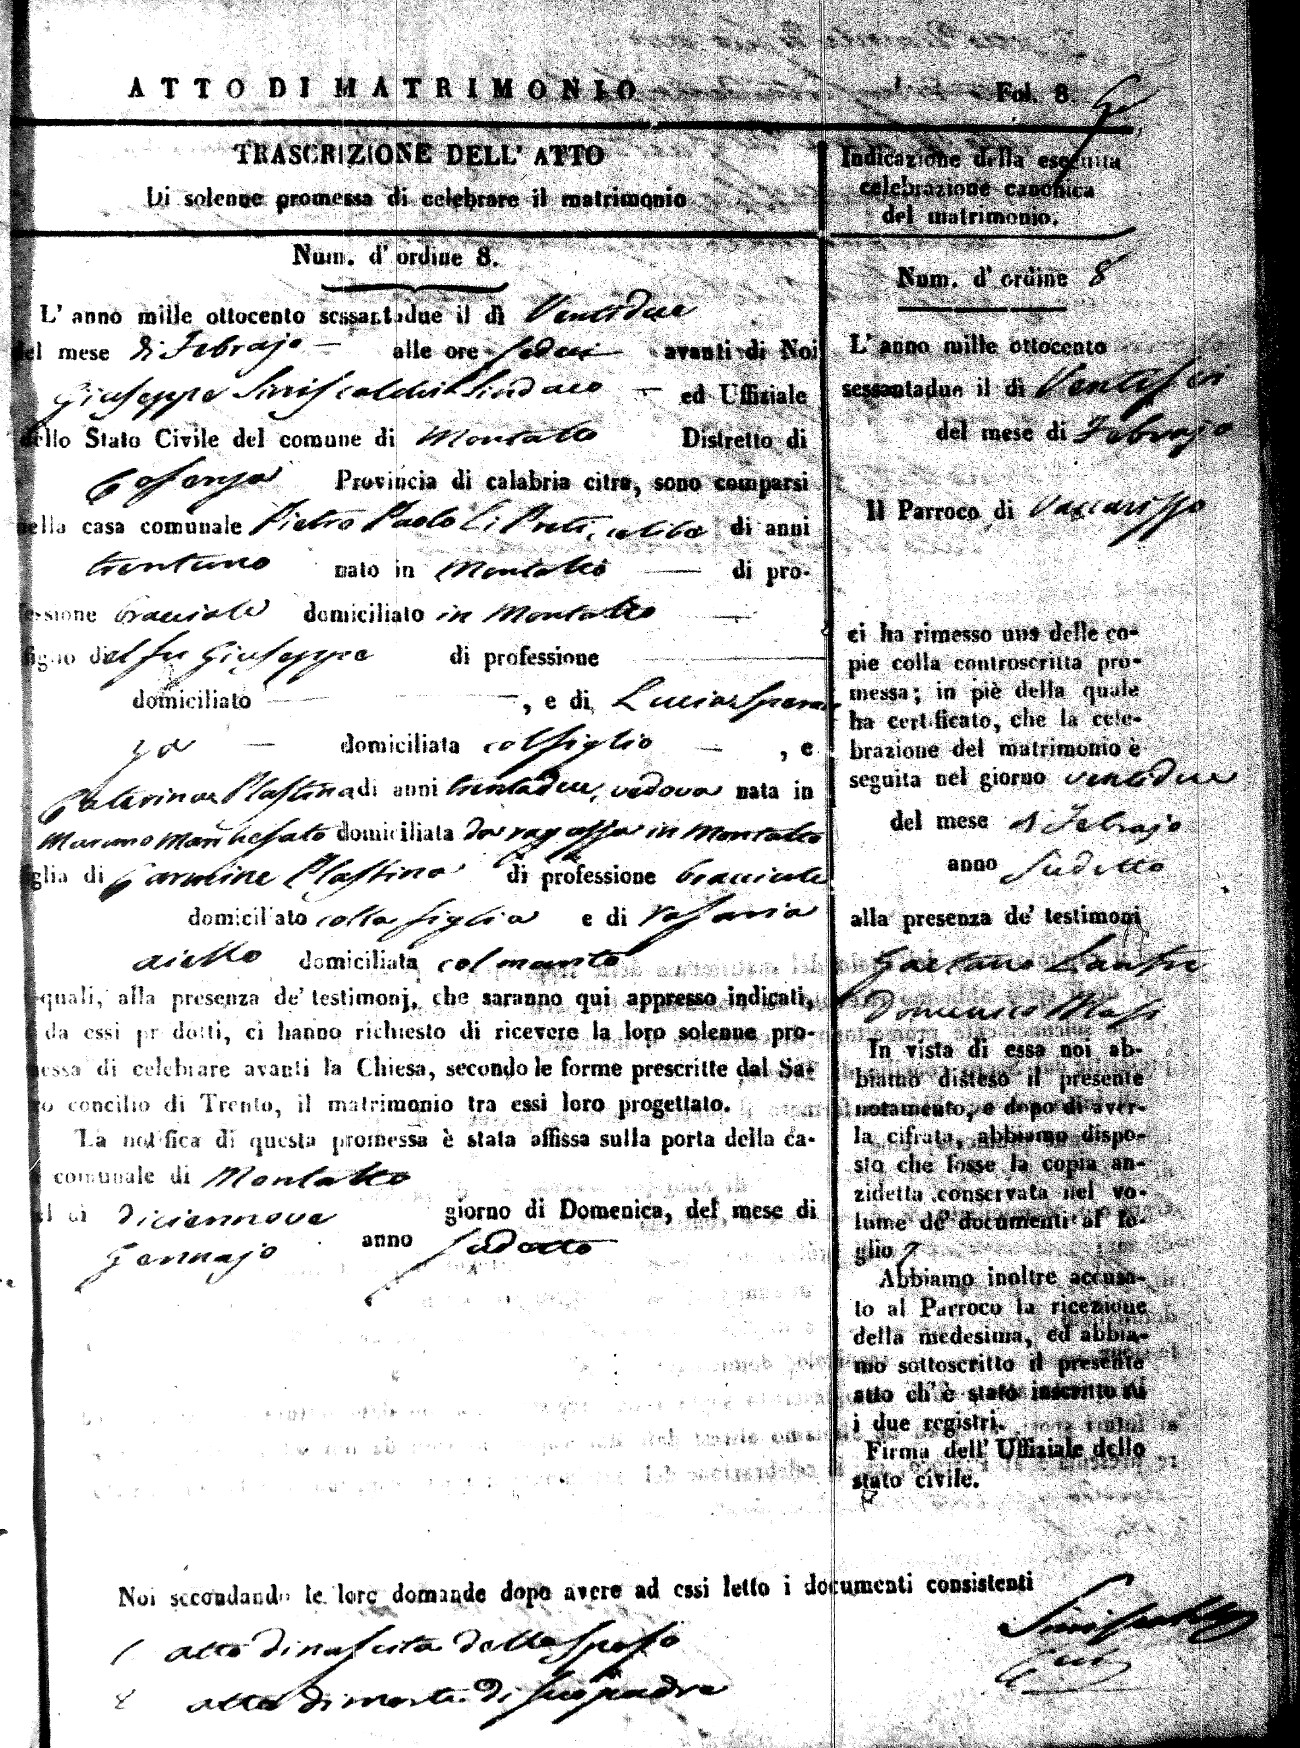 ATTO DI MATRIMONIO
Fol. 8.
TRASCRIZIONE DELL' ATTO
Di solenne promessa di celebrare il matrimonio
Num. d' ordine 8.
L' anno mille ottocento sessantadue il dì Ventidue
del mese di Febrajo alle ore sedici avanti di Noi
Giuseppe Siniscalchi Sindaco ed Uffiziale
dello Stato Civile del comune di Montalto Distretto di
Cosenza Provincia di calabria citra, sono comparsi
nella casa comunale Pietro Paolo Li Preti, celibe di anni
trentuno nato in Montalto di pro-
fessione bracciale domiciliato in Montalto
figlio del fu Giuseppe di professione
domiciliato , e di Lucia Speran
za domiciliata col figlio , e
Caterina Plastina di anni trentadue, vedova nata in
Marano Marchesato domiciliata da ragazza in Montalto
figlia di Carmine Plastina di professione bracciale
domiciliato colla figlia e di Rosaria
Aiello domiciliata col marito
quali, alla presenza de' testimonj, che saranno qui appresso indicati,
da essi prodotti, ci hanno richiesto di ricevere la loro solenne pro-
messa di celebrare avanti la Chiesa, secondo le forme prescritte dal Sa-
ro concilio di Trento, il matrimonio tra essi loro progettato.
La notifica di questa promessa è stata affissa sulla porta della ca-
comunale di Montalto
il dì diciannove giorno di Domenica, del mese di
Gennajo anno sudetto
Noi secondando le loro domande dopo avere ad essi letto i documenti consistenti
1 atto di nascita dello sposo
2 atto di morte di suo padre
Indicazione della eseguita
celebrazione canonica
del matrimonio.
Num. d' ordine 8
L' anno mille ottocento
sessantadue il di Ventisei
del mese di Febrajo
Il Parroco di Vaccarizzo
ci ha rimesso una delle co-
pie colla controscritta pro-
messa; in piè della quale
ha certificato, che la cele-
brazione del matrimonio è
seguita nel giorno ventidue
del mese di Febrajo
anno sudetto
alla presenza de' testimoni
Gaetano
Domenico Masi
In vista di essa noi ab-
biamo disteso il presente
notamento, e dopo di aver-
la cifrata, abbiamo dispo-
sto che fosse la copia an-
zidetta conservata nel vo-
lume de' documenti al fo-
glio 7
Abbiamo inoltre accusa-
to al Parroco la ricezione
della medesima, ed abbia-
mo sottoscritto il presente
atto ch' è stato inscritto su
i due registri.
Firma dell' Uffiziale dello
stato civile.